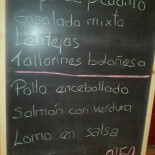 de picadillo
Ensalada mixta
Lentejas
Tallarines boloñesa
Pollo encebollado
Salmón con verdura
Lomo en salsa